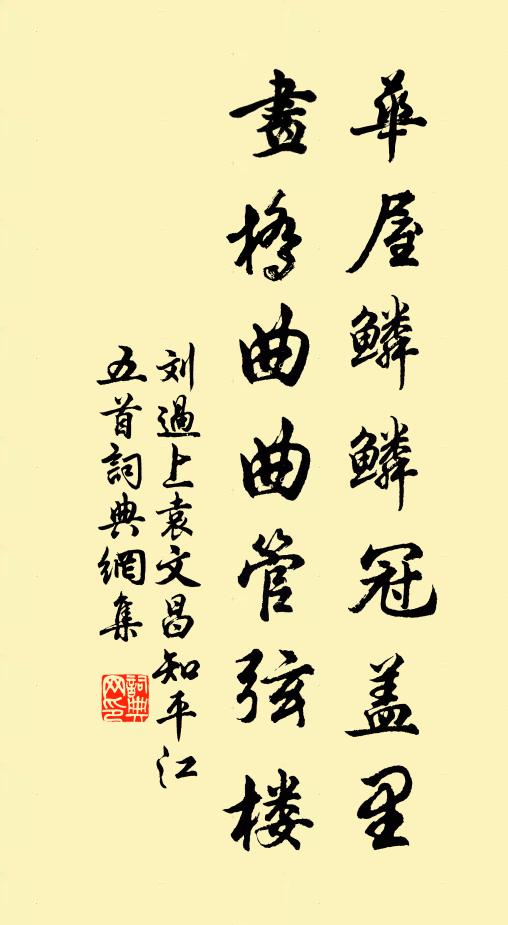 華屋鱗鱗冠盖里
畫橋曲曲管弦楼
刘過上袁文昌知平江
五首詞典網集
詞典网印